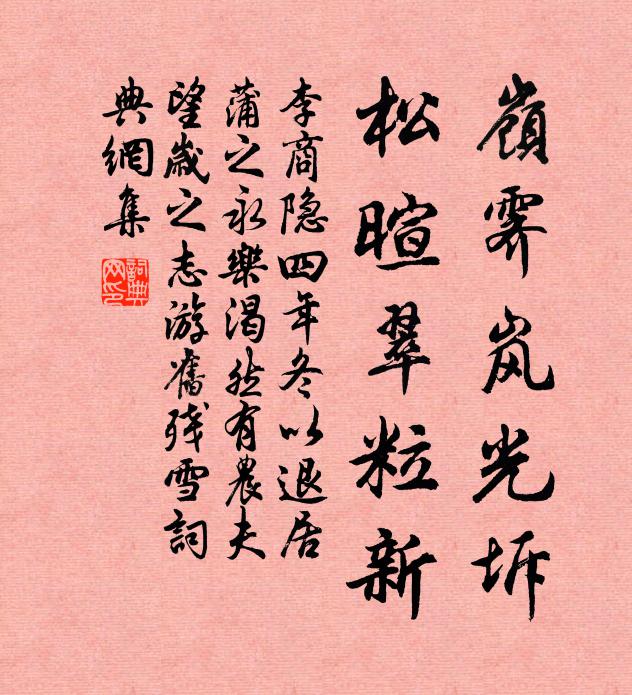 嶺霽岚光坼
松暄翠粒新
李商隐四年冬以退居
蒲之永樂渴然有農夫
望歲之志游舊残雪詞
典網集
詞典网印